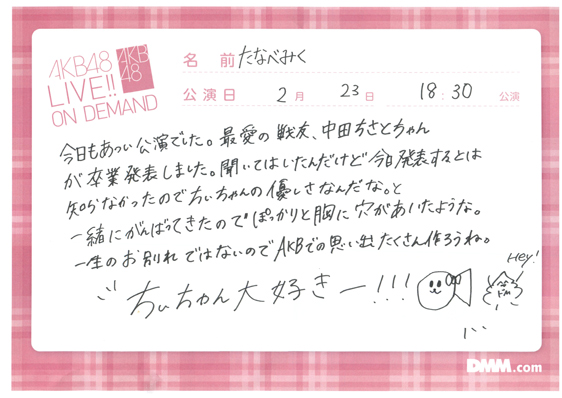 AKB48
LIVE!!
ON DEMAND
AKB
48
名 前 たなべみく
公演日 2月 23日 18:30 公演
今日もあつい公演でした。最愛の戦友、中田ちさとちゃん
が卒業発表しました。聞いてはいたんだけど今日発表するとは
知らなかったのでちぃちゃんの優しさなんだな。と
一緒にがんばってきたのでぽっかりと胸に穴があいたような。
一生のお別れではないのでAKBでの思い出たくさん作ろうね。
ちぃちゃん大好きー!!!
Hey!
DMM.com